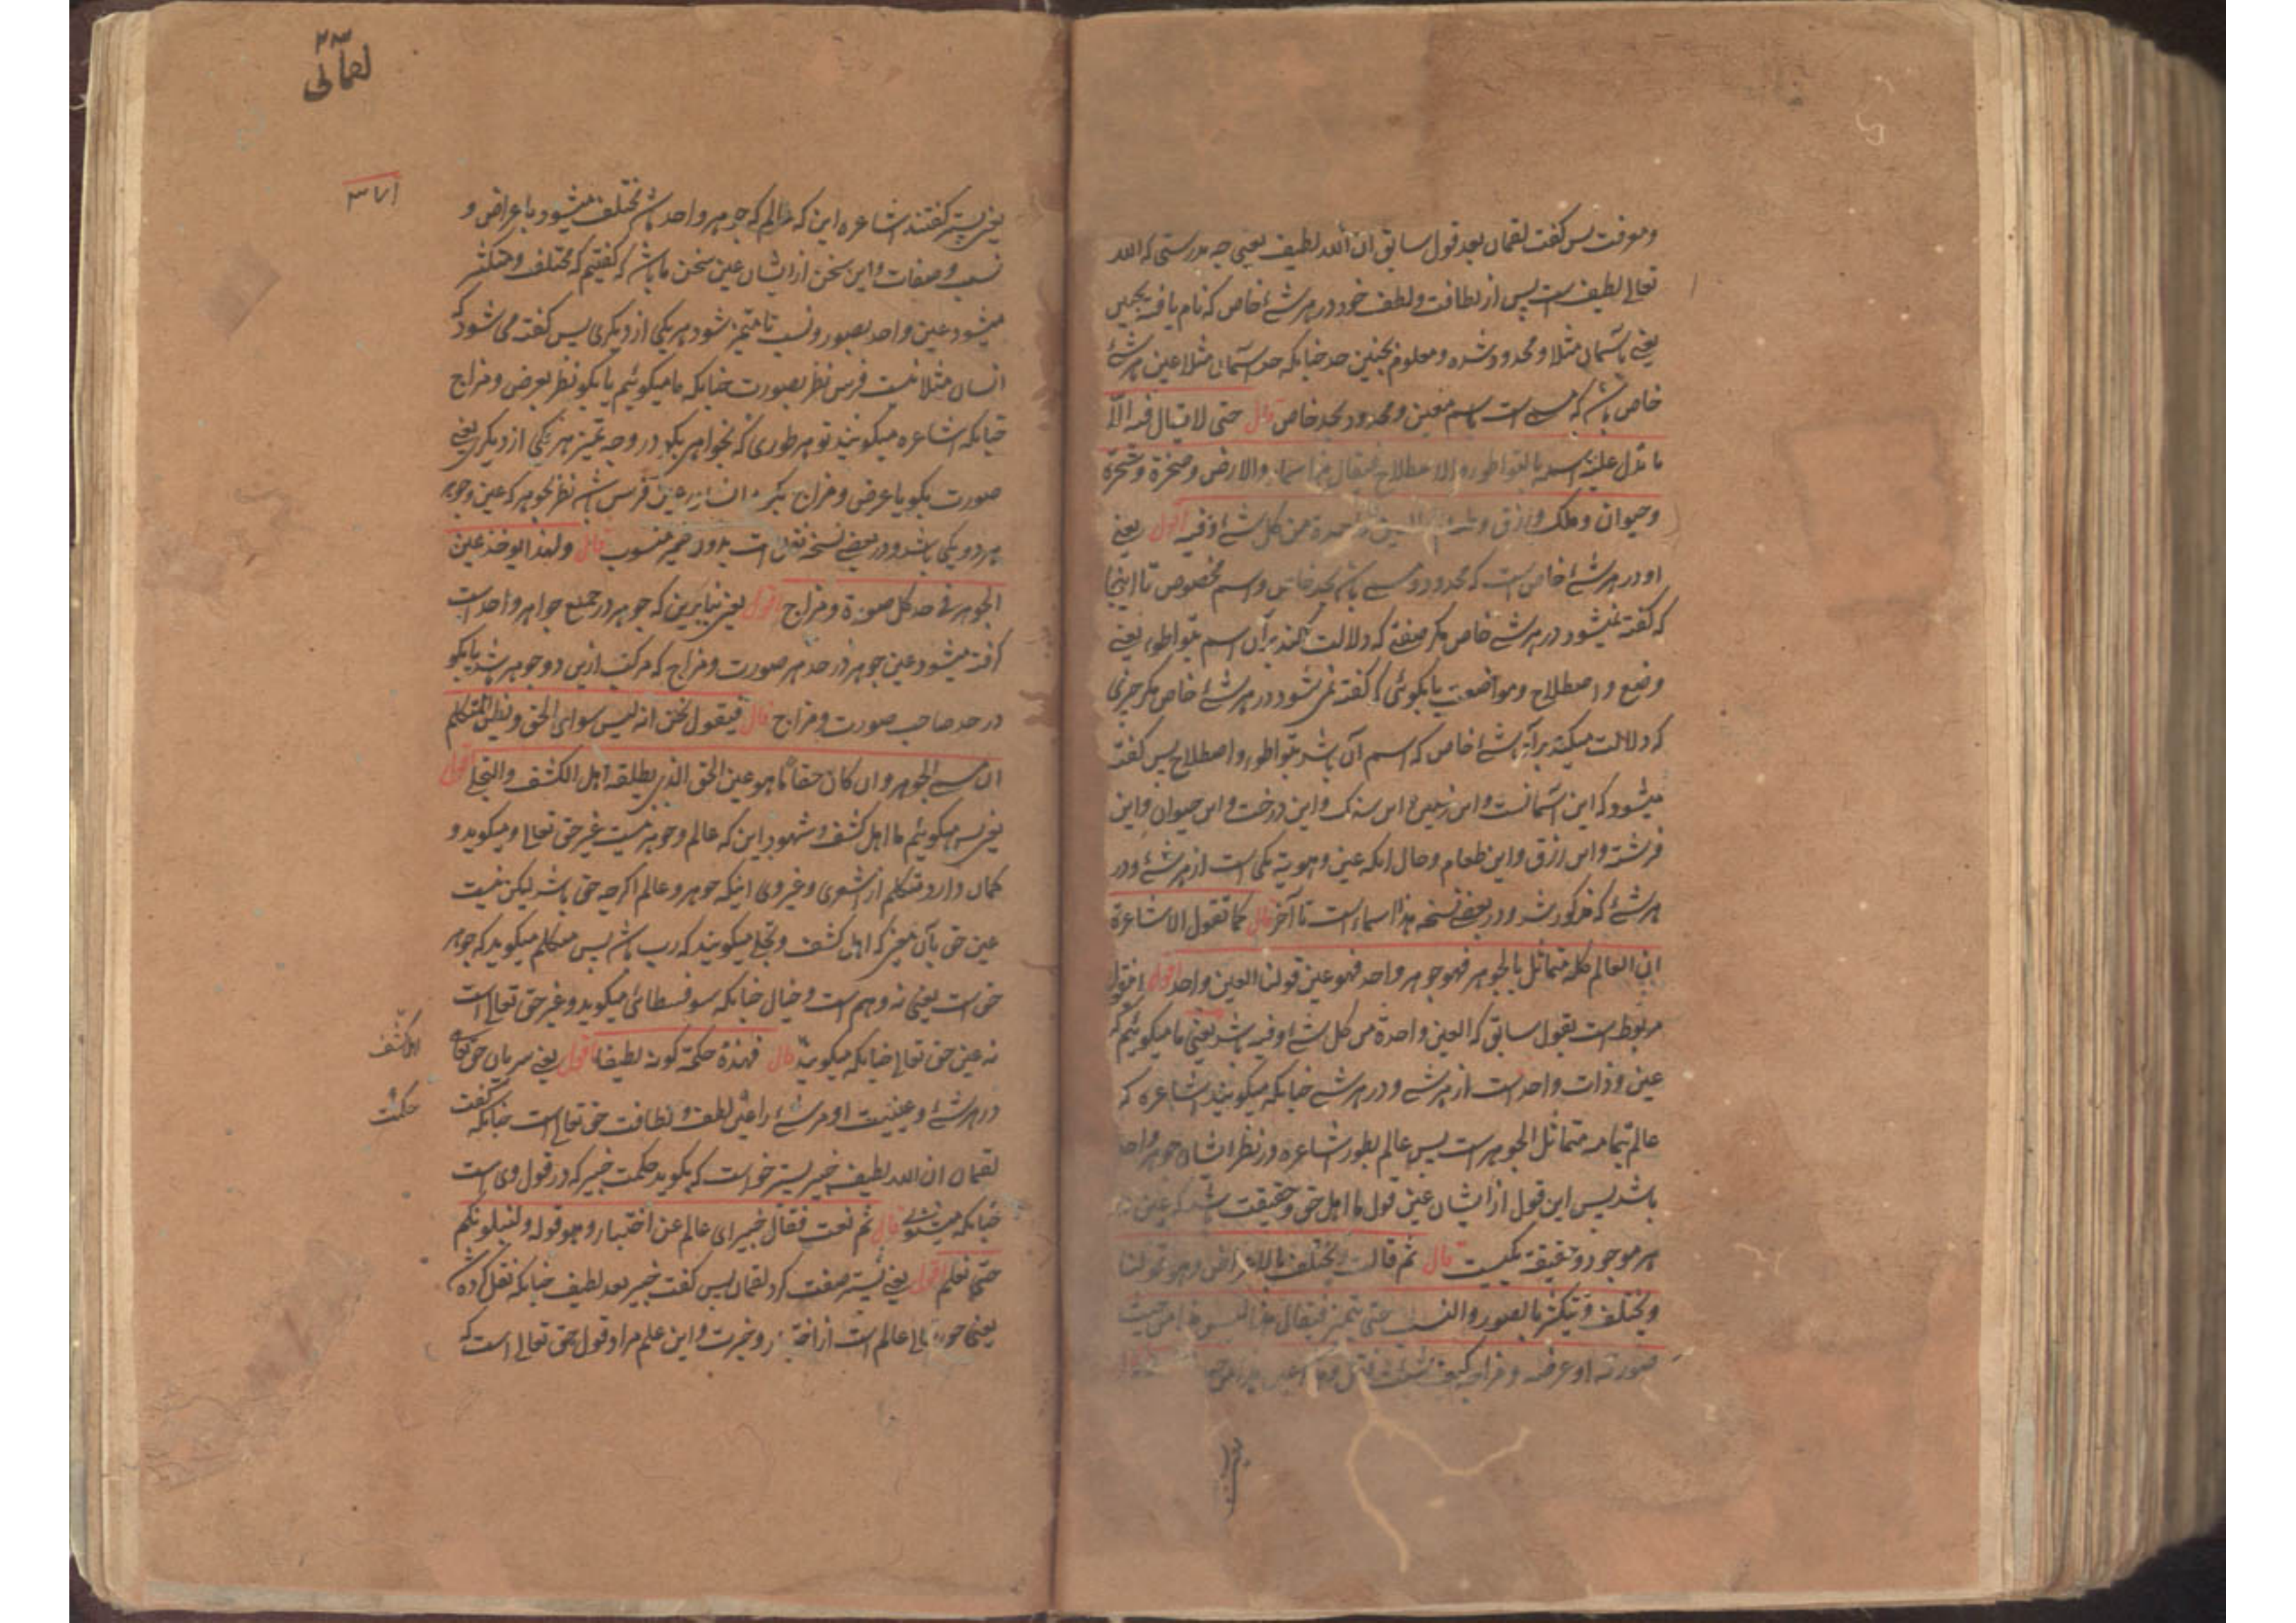 و موقت پس گفت لقمان بعد قول سابق ان الله لطیف یعنی چه بدرستی که الله
تعالی لطیف است پس از لطافت و لطف خود در هر شئ خاص که نام یافته بچنین
یعنی بآسمان مثلا و محدود شده و معلوم بچنین حد چنانکه حد آسمان مثلا عین هر شئ
خاص باشد که مسمی است باسم معین و محدود بحد خاص قال حتی لا یقال فیه الا
ما یدل علیه اسمه بالتواطو و الاصطلاح فیقال هذا سماء والارض وصخرة وشجرة
وحیوان وملک ورزق وطعام والعین واحدة من کل شئ وفیه اقول یعنی
او در هر شئ خاص است که محدود و مسمی باشد بحد خاص و اسم مخصوص تا اینجا
که گفته نمیشود در هر شئ خاص مگر صفتی که دلالت کند بر آن اسم بتواطو یعنی
وضع و اصطلاح و مواضعت یا بگوئی که گفته نمی شود در هر شئ خاص مگر چیزی
که دلالت میکند بر آن شئ خاص که اسم آن باشد بتواطو و اصطلاح پس گفته
میشود که این آسمانست و این زمین و این سنگ و این درخت و این حیوان و این
فرشته و این رزق و این طعام و حال آنکه عین و هویة یکی است از هر شئ و در
هر شئ که مذکور شد و در بعضی نسخه هذا سماء است تا آخر قال کما تقول الاشاعرة
ان العالم کله متماثل بالجوهر فهو جوهر واحد فهو عین قولنا العین واحد اقول
مربوط است بقول سابق که العین واحدة من کل شئ وفیه باشد یعنی ما میگوئیم که
عین و ذات واحد است از هر شئ و در هر شئ چنانکه میگویند اشاعره که
عالم بتمامه متماثل الجوهر است پس عالم بطور اشاعره و در نظر ایشان جوهر واحد
باشد پس این قول از ایشان عین قول ما اهل حق و حقیقت باشد که عین
هر موجود و حقیقة یکیست قال ثم قالت ویختلف بالاعراض وهو قولنا
ویختلف ویتکثر بالصور والنسب حتی یتمیز فیقال هذا لیس هذا من حیث
صورته او عرضه ومزاجه کیف شئت فقل وهذا عین هذا من
لقمانی
۳۷۱
یعنی پستر گفتند اشاعره این که عالم که جوهر واحد باشد مختلف میشود باعراض و
نسب و صفات و این سخن از ایشان عین سخن ما باشد که گفتیم که مختلف و متکثر
میشود عین واحد بصور و نسب تا متمیز شود هر یکی از دیگری پس گفته می شود که
انسان مثلا نیست فرس نظر بصورت چنانکه ما میگوئیم یا بگو نظر بعرض و مزاج
چنانکه اشاعره میگویند تو هر طوری که بخواهی بگو در وجه تمیز هر یکی از دیگری یعنی
صورت بگو یا عرض و مزاج بگو و انسان عین فرس باشد نظر بجوهر که عین و جوهر
هر دو یکی باشد و در بعضی نسخه فقل است بدون ضمیر منسوب قال ولهذا یوخذ عین
الجوهر فی حد کل صورة ومزاج اقول یعنی بنابرین که جوهر در جمیع جواهر واحد است
گرفته میشود عین جوهر در حد هر صورت و مزاج که مرکب ازین دو جوهر باشد یا بگو
در حد صاحب صورت و مزاج قال فیقول نحن انه لیس سوای الحق ویظن المتکلم
ان مسمی الجوهر وان کان حقا ما هو عین الحق الذی یطلقه اهل الکشف والتجلی اقول
یعنی پس میگوئیم ما اهل کشف و شهود این که عالم و جوهر نیست غیر حق تعالی و میگوید و
گمان دارد متکلم از اشعری و غیر وی اینکه جوهر و عالم اگرچه حق باشد لیکن نیست
عین حق بآن معنی که اهل کشف و تجلی میگویند که رب باشد پس متکلم میگوید که جوهر
حق است یعنی نه وهم است و خیال چنانکه سوفسطائی میگوید و غیر حق تعالی است
نه عین حق تعالی چنانکه میگویند قال فهذه حکمة کونه لطیفا اقول یعنی سریان حق تعالی
اهل کشف
در هر شئ و عینیت او هر شئ را عین لطف و لطافت حق تعالی است چنانکه گفت
حکمت
لقمان ان الله لطیف خبیر پستر خواست که بگوید حکمت خبیر که در قول وی است
چنانکه میشنوی قال ثم نعت فقال خبیر ای عالم عن اختبار وهو قوله ولنبلونکم
حتی نعلم اقول یعنی پستر صفت کرد لقمان پس گفت خبیر بعد لطیف چنانکه نقل کرده شد
یعنی حق تعالی عالم است از اختبار و خبرت و این علم مراد قول حق تعالی است که